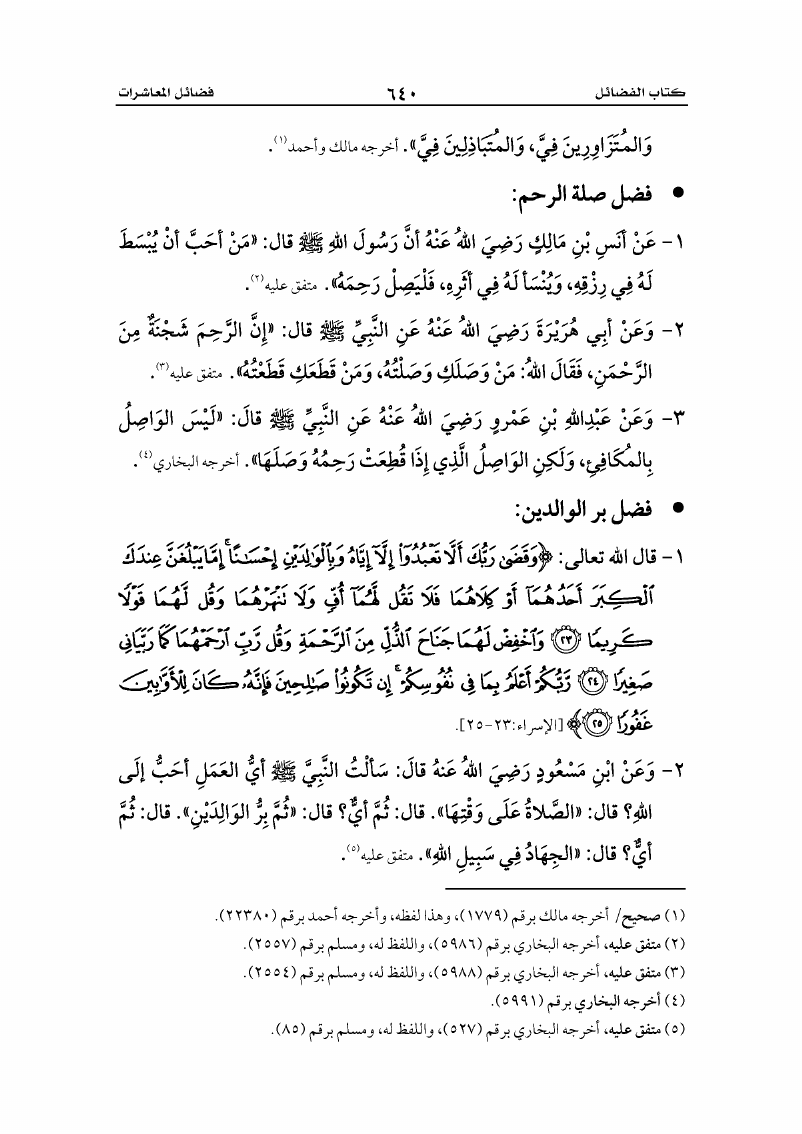 كتاب الفضائل ٦٤٠ فضائل المعاشرات
وَالمُتَزَاوِرِينَ فِيَّ، وَالمُتَبَاذِلِينَ فِيَّ». أخرجه مالك وأحمد(١).
• فضل صلة الرحم:
١- عَنْ أنَسِ بْنِ مَالِكٍ رَضِيَ اللهُ عَنْهُ أنَّ رَسُولَ اللهِ ﷺ قال: «مَنْ أحَبَّ أنْ يُبْسَطَ
لَهُ فِي رِزْقِهِ، وَيُنْسَأ لَهُ فِي أثَرِهِ، فَلْيَصِلْ رَحِمَهُ». متفق عليه(٢).
٢- وَعَنْ أبِي هُرَيْرَةَ رَضِيَ اللهُ عَنْهُ عَنِ النَّبِيِّ ﷺ قال: «إِنَّ الرَّحِمَ شَجْنَةٌ مِنَ
الرَّحْمَنِ، فَقَالَ اللهُ: مَنْ وَصَلَكِ وَصَلْتُهُ، وَمَنْ قَطَعَكِ قَطَعْتُهُ». متفق عليه(٣).
٣- وَعَنْ عَبْدِاللهِ بْنِ عَمْرٍو رَضِيَ اللهُ عَنْهُ عَنِ النَّبِيِّ ﷺ قالَ: «لَيْسَ الوَاصِلُ
بِالمُكَافِئِ، وَلَكِنِ الوَاصِلُ الَّذِي إِذَا قُطِعَتْ رَحِمُهُ وَصَلَهَا». أخرجه البخاري(٤).
• فضل بر الوالدين:
١- قال الله تعالى: ﴿وَقَضَىٰ رَبُّكَ أَلَّا تَعْبُدُوٓا۟ إِلَّآ إِيَّاهُ وَبِٱلْوَٰلِدَيْنِ إِحْسَٰنًا ۚ إِمَّا يَبْلُغَنَّ عِندَكَ
ٱلْكِبَرَ أَحَدُهُمَآ أَوْ كِلَاهُمَا فَلَا تَقُل لَّهُمَآ أُفٍّ وَلَا تَنْهَرْهُمَا وَقُل لَّهُمَا قَوْلًا
كَرِيمًا ٢٣ وَٱخْفِضْ لَهُمَا جَنَاحَ ٱلذُّلِّ مِنَ ٱلرَّحْمَةِ وَقُل رَّبِّ ٱرْحَمْهُمَا كَمَا رَبَّيَانِى
صَغِيرًا ٢٤ رَّبُّكُمْ أَعْلَمُ بِمَا فِى نُفُوسِكُمْ ۚ إِن تَكُونُوا۟ صَٰلِحِينَ فَإِنَّهُۥ كَانَ لِلْأَوَّٰبِينَ
غَفُورًا ٢٥﴾ [الإسراء:٢٣-٢٥].
٢- وَعَنْ ابْنِ مَسْعُودٍ رَضِيَ اللهُ عَنهُ قالَ: سَألْتُ النَّبِيَّ ﷺ أيُّ العَمَلِ أحَبُّ إلَى
اللهِ؟ قال: «الصَّلاةُ عَلَى وَقْتِهَا». قال: ثُمَّ أيٌّ؟ قال: «ثُمَّ بِرُّ الوَالِدَيْنِ». قال: ثُمَّ
أيٌّ؟ قال: «الجِهَادُ فِي سَبِيلِ اللهِ». متفق عليه(٥).
(١) صحيح/ أخرجه مالك برقم (١٧٧٩)، وهذا لفظه، وأخرجه أحمد برقم (٢٢٣٨٠).
(٢) متفق عليه، أخرجه البخاري برقم (٥٩٨٦)، واللفظ له، ومسلم برقم (٢٥٥٧).
(٣) متفق عليه، أخرجه البخاري برقم (٥٩٨٨)، واللفظ له، ومسلم برقم (٢٥٥٤).
(٤) أخرجه البخاري برقم (٥٩٩١).
(٥) متفق عليه، أخرجه البخاري برقم (٥٢٧)، واللفظ له، ومسلم برقم (٨٥).